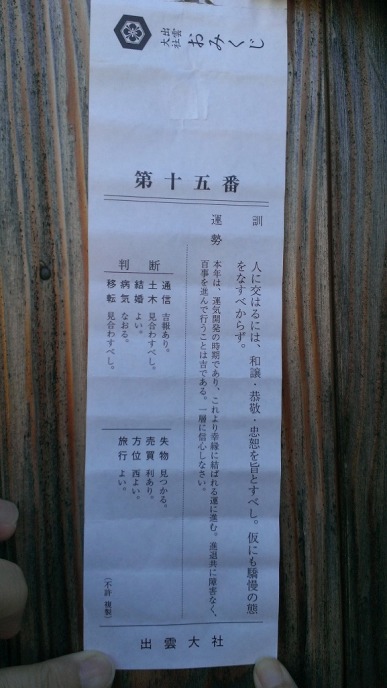 出雲大社 おみくじ
第十五番
訓
人に交はるには、和譲・恭敬・忠恕を旨とすべし。仮にも驕慢の態
をなすべからず。
運勢
本年は、運気開発の時期であり、これより幸縁に結ばれる運に進む。進退共に障害なく、
百事を進んで行うことは吉である。一層に信心しなさい。
判断
通信 吉報あり。
土木 見合わすべし。
結婚 よい。
病気 なおる。
移転 見合わすべし。
失物 見つかる。
売買 利あり。
方位 西よい。
旅行 よい。
(不許複製)
出雲大社